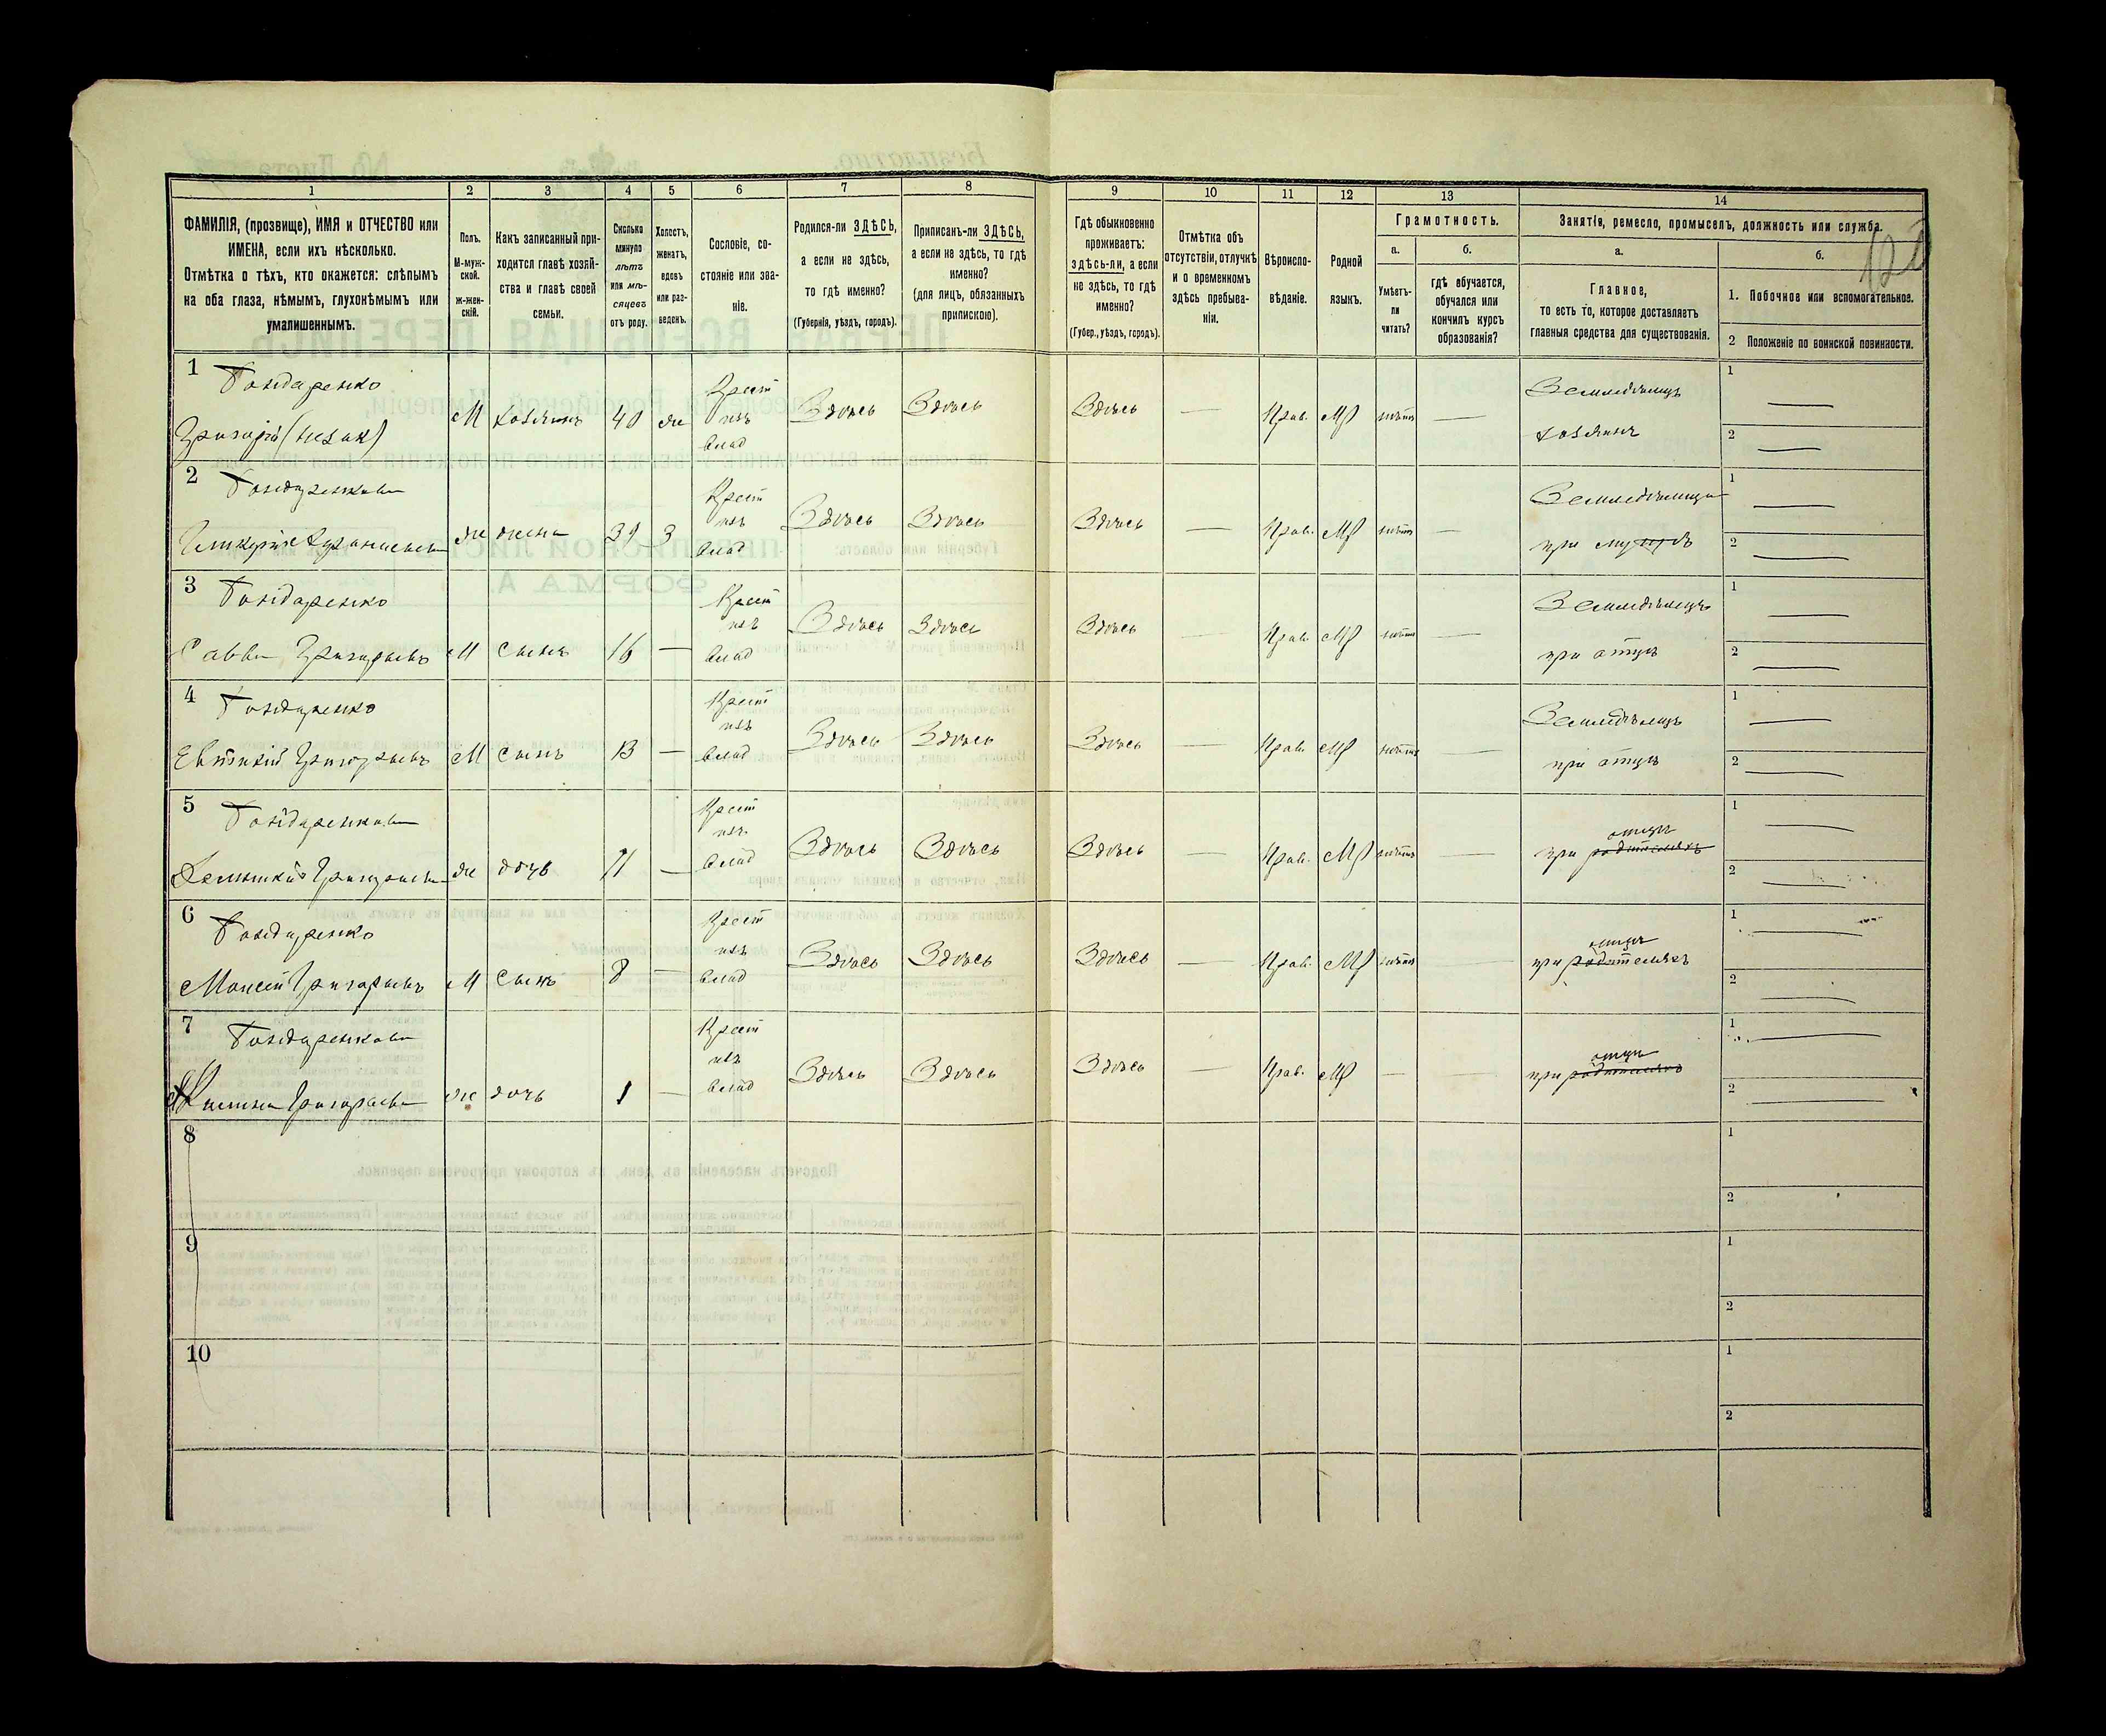 1 2 3 4 5 6 7 8 9 10 11 12 13 14
ФАМИЛІЯ, (прозвище), ИМЯ и ОТЧЕСТВО или
ИМЕНА, если ихъ нѣсколько.
Отмѣтка о тѣхъ, кто окажется: слѣпымъ
на оба глаза, нѣмымъ, глухонѣмымъ или
умалишеннымъ.
Полъ.
М-муж-
ской.
ж-жен-
скій.
Какъ записанный при-
ходится главѣ хозяй-
ства и главѣ своей
семьи.
Сколько
минуло
лѣтъ
или мѣ-
сяцевъ
отъ роду.
Холостъ,
женатъ,
вдовъ
или раз-
веденъ.
Сословіе, со-
стояніе или зва-
ніе.
Родился-ли ЗДѢСЬ,
а если не здѣсь,
то гдѣ именно?
(Губернія, уѣздъ, городъ).
Приписанъ-ли ЗДѢСЬ,
а если не здѣсь, то гдѣ
именно?
(для лицъ, обязанныхъ
припискою).
Гдѣ обыкновенно
проживаетъ:
здѣсь-ли, а если
не здѣсь, то гдѣ
именно?
(Губер., уѣздъ, городъ).
Отмѣтка объ
отсутствіи, отлучкѣ
и о временномъ
здѣсь пребыва-
ніи.
Вѣроиспо-
вѣданіе.
Родной
языкъ.
Грамотность.
а.
Умѣетъ-
ли
читать?
б.
гдѣ обучается,
обучался или
кончилъ курсъ
образованія?
Занятія, ремесло, промыселъ, должность или служба.
а.
Главное,
то есть то, которое доставляетъ
главныя средства для существованія.
б.
1. Побочное или вспомогательное.
2 Положеніе по воинской повинности.
1 Бондаренко
Григорій
М хозяинъ 40 ж
Крест
изъ
влад
Здѣсь Здѣсь Здѣсь — Прав. МР нѣтъ —
Земледѣлецъ
хозяинъ
1 —
2 —
2 Бондаренкова
ж жена 39 З
Крест
изъ
влад
Здѣсь Здѣсь Здѣсь — Прав. МР нѣтъ —
при мужѣ
1 —
2 —
3 Бондаренко
Савва Григорьевъ
М сынъ 16 —
Крест
изъ
влад
Здѣсь Здѣсь Здѣсь — Прав. МР нѣтъ —
Земледѣлецъ
при отцѣ
1 —
2 —
4 Бондаренко
Евтихій Григорьевъ
М сынъ 13 —
Крест
изъ
влад
Здѣсь Здѣсь Здѣсь — Прав. МР нѣтъ —
Земледѣлецъ
при отцѣ
1 —
2 —
5 Бондаренкова
Григорьева
ж дочь 11 —
Крест
изъ
влад
Здѣсь Здѣсь Здѣсь — Прав. МР нѣтъ —
отцѣ
при родителяхъ
1 —
2 —
6 Бондаренко
Моисей Григорьевъ
М сынъ 8 —
Крест
изъ
влад
Здѣсь Здѣсь Здѣсь — Прав. МР нѣтъ —
отцѣ
при родителяхъ
1 —
2 —
7 Бондаренкова
Григорьева
ж дочь 1 —
Крест
изъ
влад
Здѣсь Здѣсь Здѣсь — Прав. МР — —
отцѣ
при родителяхъ
1 —
2 —
8
1
2
9
1
2
10
1
2